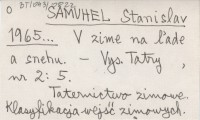 O
SAMUHEL Stanislav
1965... V zime na ľade
a snehu. – Vys. Tatry,
nr 2: 5.
Taternictwo zimowe.
Klasyfikacja wejść zimowych.